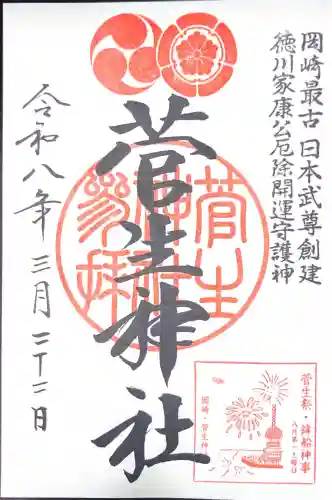 岡崎最古 日本武尊創建
徳川家康公厄除開運守護神
菅生神社
令和八年 三月 二十二日
菅生神社参拝
菅生祭・鉾船神事
八月第一土曜日
岡崎・菅生神社